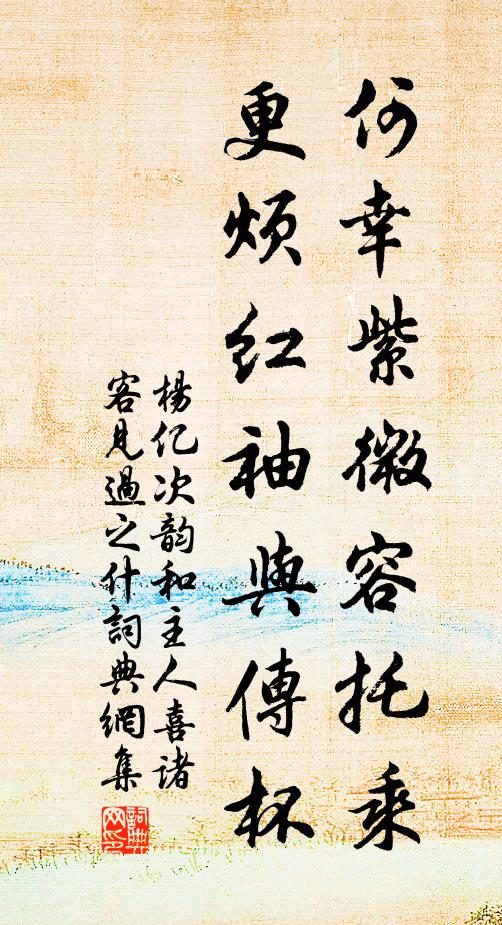 何幸紫微容托乘
更烦红袖與傳杯
楊亿次韵和主人喜诸
客見過之什詞典網集